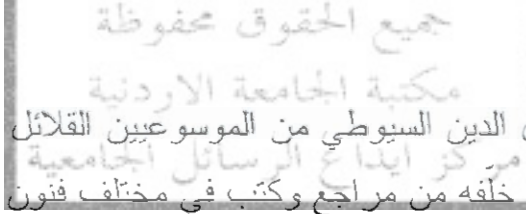 جميع الحقوق محفوظة
مكتبة الجامعة الاردنية
الدين السيوطي من الموسوعيين القلائل
مركز ايداع الرسائل الجامعية
خلّفه من مراجع وكتب في مختلف فنون